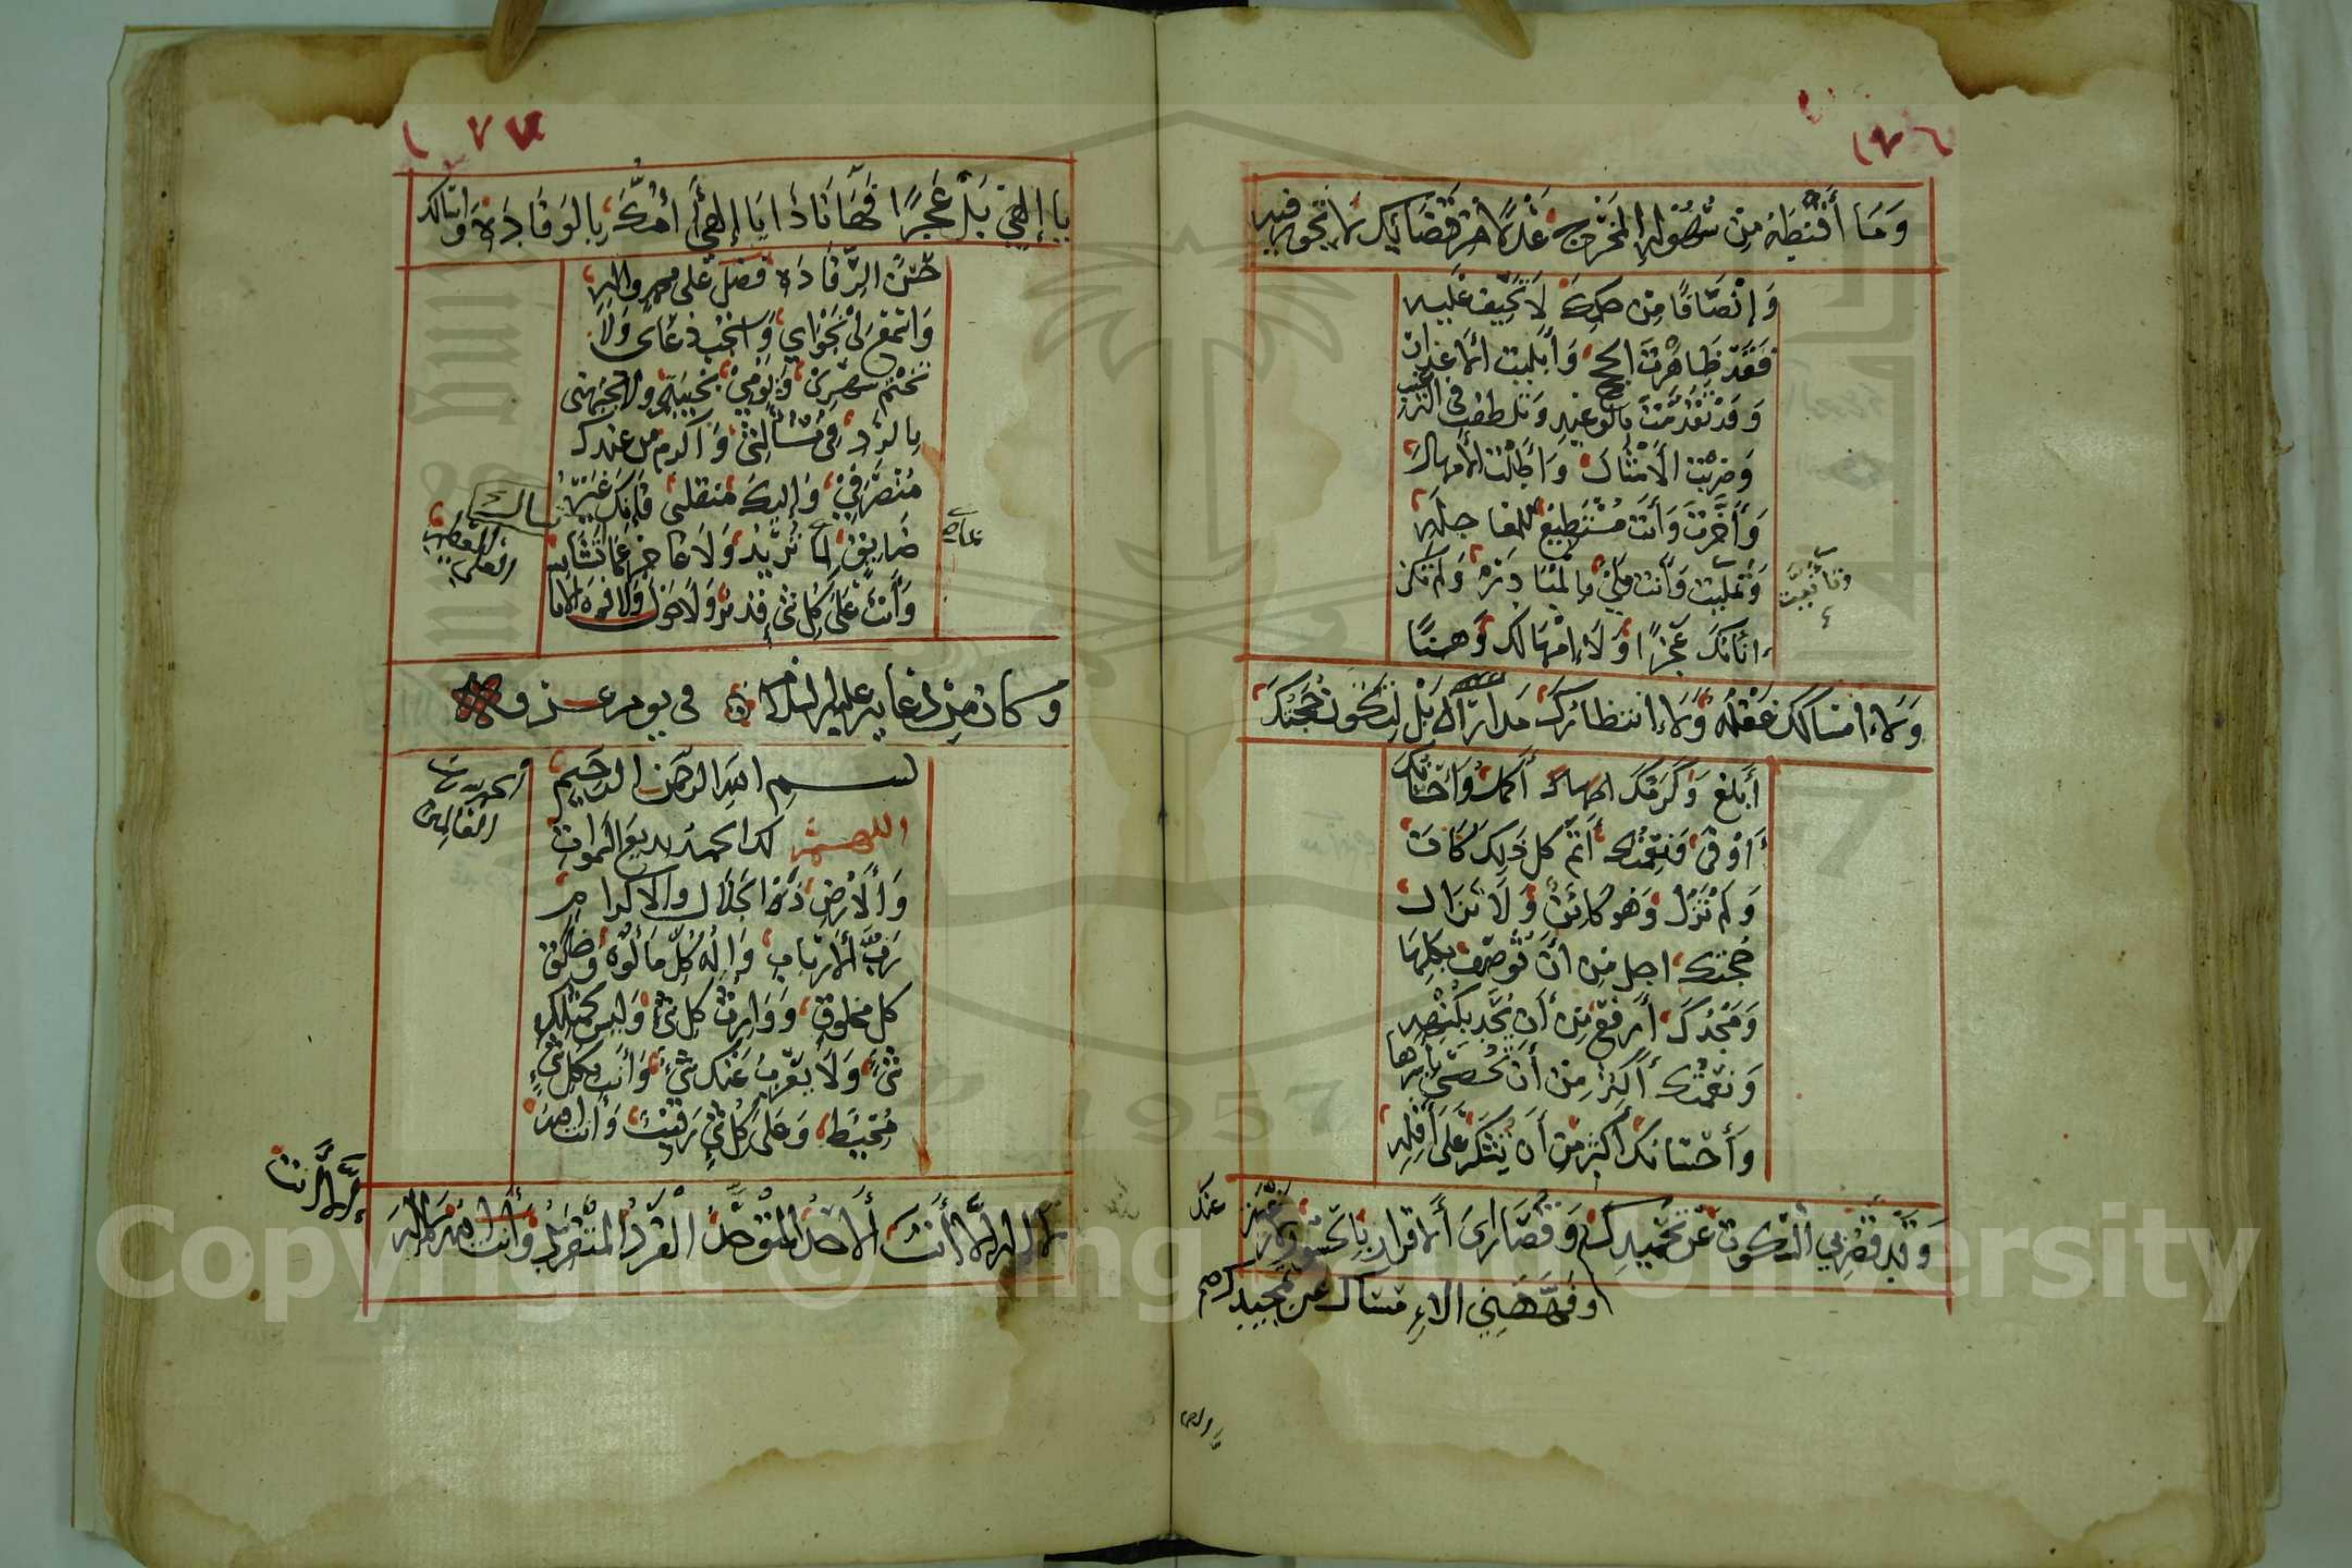 ١٧٦
وَمَا أَقْنَطَهُ مِنْ سُهُولَةِ المَخْرَجِ عَدْلًا مِنْ قَضَائِكَ لا تَجُورُ فِيهِ
وَإِنْصَافًا مِنْ حُكْمِكَ لَا تَحِيفُ عَلَيْهِ
فَقَدْ ظَاهَرْتَ الحجج وَأَبْلَيْتَ الاعذار
وَقَدْ تَقَدَّمْتَ بِالوَعِيدِ وَتَلَطَّفْتَ فى الترغيب
وَضَرَبْتَ الأَمْثَالَ وَأَطَلْتَ الأمهال
وَأَخَّرْتَ وَأَنْتَ مُسْتَطِيعٌ للمعاجله
وَتَأَنَّيْتَ وَأَنْتَ مَلِيٌّ بِالمُبَادَرَةِ وَلَمْ تَكُنْ
أَنَاتُكَ عَجْزًا وَلَا إِمْهَالُكَ وَهْنًا
وَلا امْسَاكُكَ غَفْلَةً وَلا انتظارُكَ مدارَاةً بَلْ لِتَكُونَ حُجَّتُكَ
أَبْلَغَ وَكَرَمُكَ اكمل وَإحْسَانُكَ
أَوْفَى وَنِعْمَتُكَ أَتَمَّ كل ذَلِكَ كَانَ
وَلَمْ تَزَلْ وَهُوَ كَائِنٌ وَلَا تَزَالُ
حُجَّتُكَ اجل مِنْ أَنْ تُوصَفَ بِكُلِّهَا
وَمَجْدُكَ أَرْفَعُ مِنْ أَنْ يُحَدَّ بِكُنْهِهِ
وَنِعْمَتُكَ أَكْثَرُ مِنْ أَنْ تُحْصَى بأسرها
وَإحْسَانُكَ أَكْثَرُ مِنْ أَنْ تُشْكَرَ عَلَى أَقَلِّهِ
وَقَدْ قَصَّرَ بِيَ السُّكُوتُ عَنْ تَحْمِيدِكَ وَقُصَارَايَ الاقرار بِالحُسُورِ
وَفَهَّهَنِي الإمْسَاكُ عن تمجيدك
١٧٧
يَا إِلهِي بَلْ عَجْزًا فَهَا أَنَا ذَا يَا إِلهِي أَؤُمُّكَ بِالوَفَادَةِ وَأسألك
حُسْنَ الرِّفَادَةِ فَصَلِّ عَلَى محمد واله
وَاسْمَعْ نَجْوَايَ وَاسْتَجِبْ دُعَائي وَلَا
تَخْتِمْ يَوْمِي بِخَيْبَتِي ولا تجبهنى
بِالرَّدِّ فِي مَسْأَلَتِي وَأكرم من عندك
مُنْصَرَفِي وَإِلَيْكَ منقلبى فإنك غَيْرُ
ضَائِقٍ بِمَا تُرِيدُ وَلَا عَاجِزٍ عَمَّا تُسْأَلُ
وَأَنْتَ عَلَى كُلِّ شَيْءٍ قَدِيرٌ وَلَا حَوْلَ وَلَا قُوَّةَ الا با
لله العلي العظيم
وكان من دُعَائِهِ عليه السلام فى يوم عرفه
بسم الله الرحمن الرحيم
الحمد لله رب العالمين
اللهم لك الحمد بديع السموات
وَالأَرْضِ ذَا الجَلَال والاكرام
رَبَّ الأرْبَابِ وَإِلهَ كُلِّ مَأْلُوهٍ وَخَالِقَ
كل مخلوق وَوَارِثَ كل شيء وَلَيْسَ كمثله
شَيْءٌ وَلَا يَعْزُبُ عَنْكَ شَيْءٌ وَأَنْتَ بكل شَيْءٍ
مُحِيطٌ وَعَلَى كُلِّ شَيْءٍ رَقِيبٌ وَأنت الله
لا اله إلَّا أَنْتَ الأَحَدُ المُتَوَحِّدُ الفَرْدُ المُتَفَرِّدُ وَأنت الله لا اله
إلا أنت
Copyright © King Saud University
1957